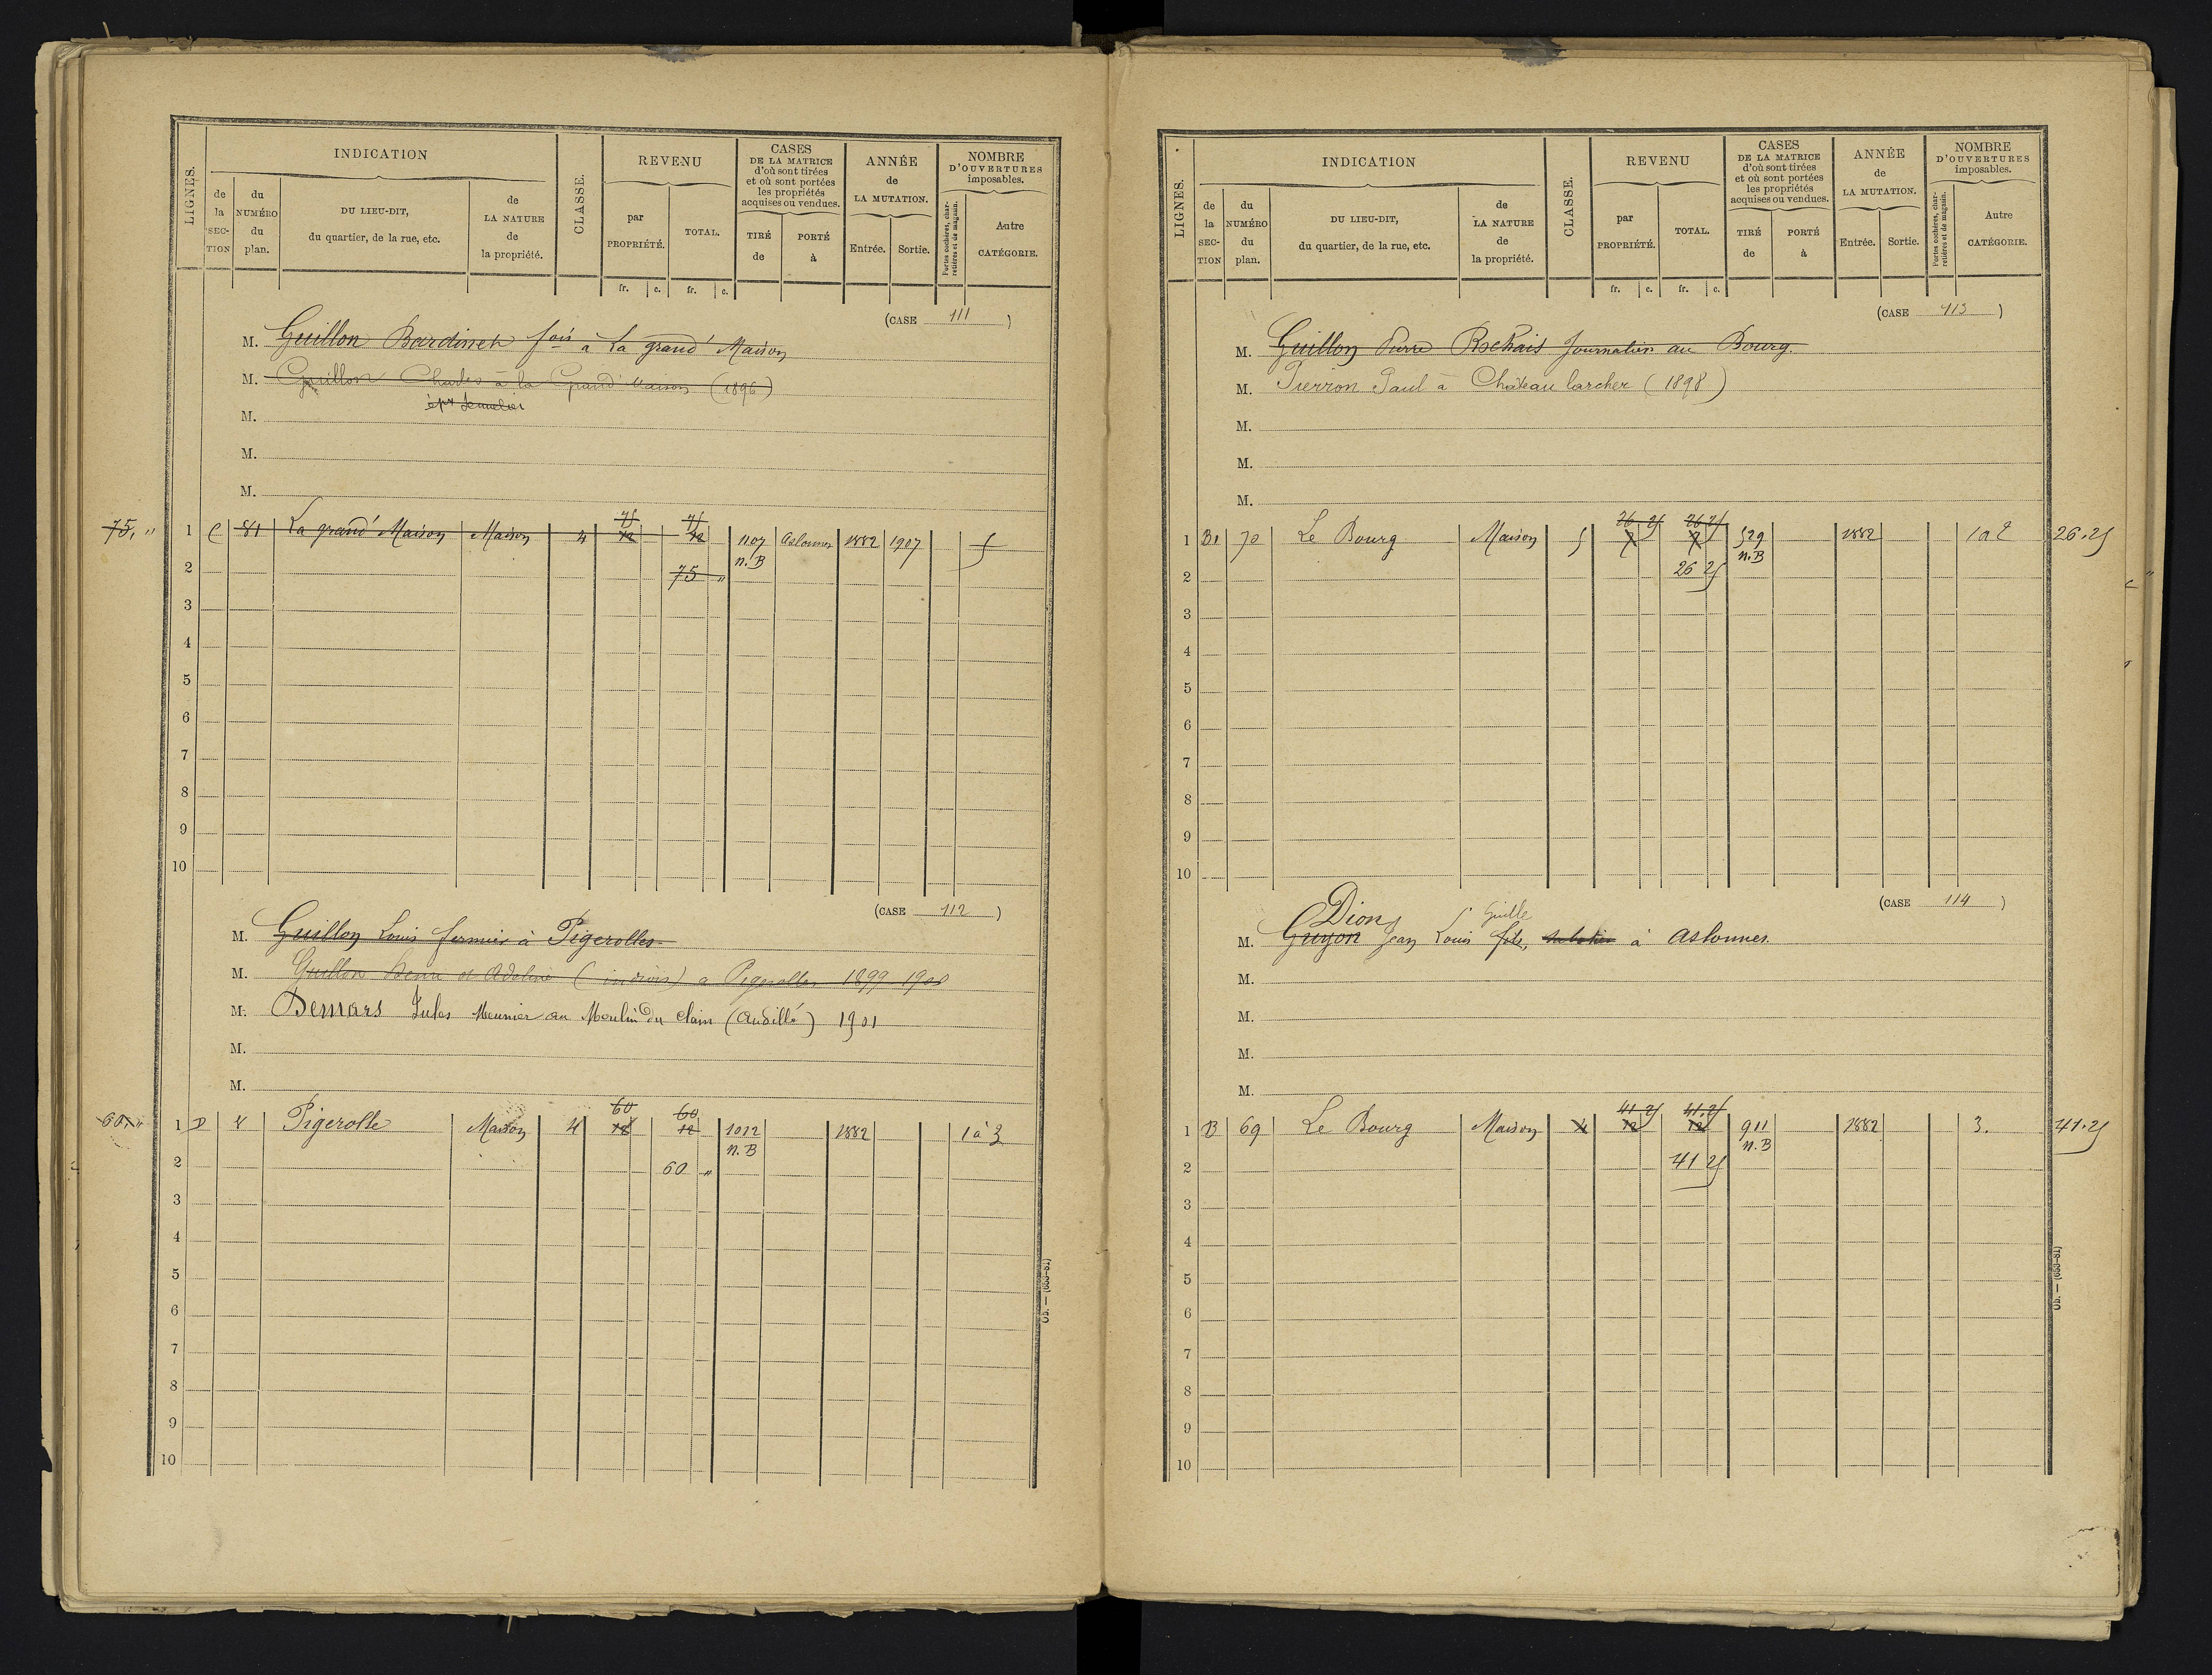 LIGNES. INDICATION CLASSE. REVENU CASES DE LA MATRICE d'où sont tirées et où sont portées les propriétés acquises ou vendues. ANNÉE de LA MUTATION. NOMBRE D'OUVERTURES imposables.
de la SEC-TION du NUMÉRO du plan. DU LIEU-DIT, du quartier, de la rue, etc. de LA NATURE de la propriété. par PROPRIÉTÉ. TOTAL. TIRÉ de PORTÉ à Entrée. Sortie. Portes cochères, char-retières et de magasin. Autre CATÉGORIE.
fr. c. fr. c.
(CASE 111 )
M. Guillon Bardinet fois à La grand' Maison
M. Guillon Charles à la Grand' Maison (1896)
M.
M.
M.
75, " 1 C 81 La grand' Maison Maison 4 75 12 75 12 1107 n. B Aslonnes 1882 1907 5
2 75 "
3
4
5
6
7
8
9
10
(CASE 112 )
M. Guillon Louis fermier à Pigerolles
M. Guillon et Adeline à Pigerolles 1899
M. Demars Jules Meunier au Moulin du Clain (Andillé) 1901
M.
M.
60, " 1 D 4 Pigerolle Maison 4 60 60 12 1012 n. B 1882 1 à 3
2 60 "
3
4
5
6
7
8
9
10
Ob. — (653-81)
LIGNES. INDICATION CLASSE. REVENU CASES DE LA MATRICE d'où sont tirées et où sont portées les propriétés acquises ou vendues. ANNÉE de LA MUTATION. NOMBRE D'OUVERTURES imposables.
de la SEC-TION du NUMÉRO du plan. DU LIEU-DIT, du quartier, de la rue, etc. de LA NATURE de la propriété. par PROPRIÉTÉ. TOTAL. TIRÉ de PORTÉ à Entrée. Sortie. Portes cochères, char-retières et de magasin. Autre CATÉGORIE.
fr. c. fr. c.
(CASE 113 )
M. Guillon Pierre Rochais Journalier au Bourg.
M. Pierron Paul à Château larcher (1898)
M.
M.
M.
1 B1 70 Le Bourg Maison 5 26 25 7 26 25 7 529 n. B 1882 1 à 2 26.25
2 26 25
3
4
5
6
7
8
9
10
(CASE 114 )
Dion
M. Guyon Jean Louis fils, à Aslonnes.
M.
M.
M.
M.
1 B 69 Le Bourg Maison 4 41 25 12 41.25 12 911 n. B 1882 3. 41.25
2 41 25
3
4
5
6
7
8
9
10
Ob. — (653-81)